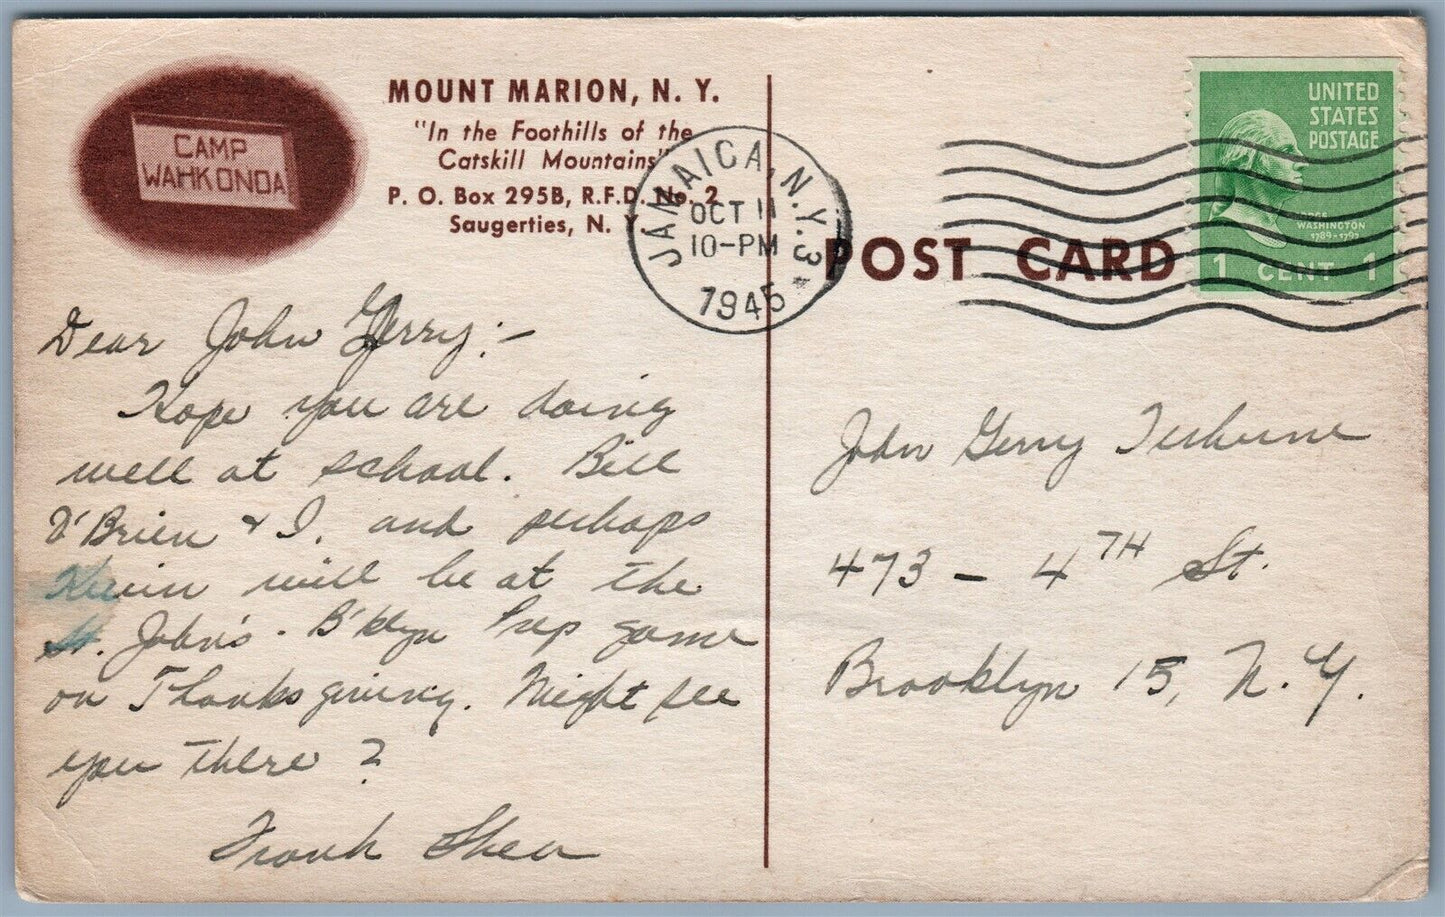 CAMP
WAHKONDA
MOUNT MARION, N. Y.
"In the Foothills of the
Catskill Mountains"
P. O. Box 295B, R.F.D. No. 2
Saugerties, N. Y.
JAMAICA, N.Y. 3
OCT 11
10-PM
1945
UNITED
STATES
POSTAGE
WASHINGTON
1789-1797
1 CENT 1
POST CARD
Dear John Gerry:-
Hope you are doing
well at school. Bill
O'Brien & I. and perhaps
Kevin will be at the
St. John's - B'klyn Prep game
on Thanksgiving. Might see
you there?
Frank Shea
John Gerry Terhune
473 - 4TH St.
Brooklyn 15, N. Y.